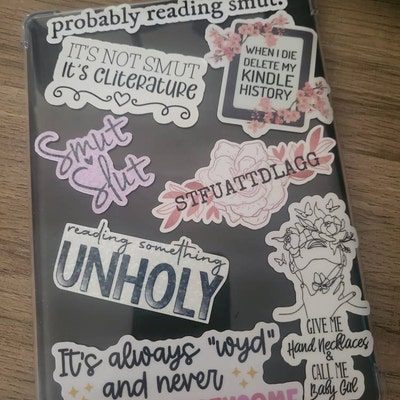 probably reading smut.
IT'S NOT SMUT
It's CLITERATURE
WHEN I DIE
DELETE MY
KINDLE
HISTORY
Smut
Slut
STFUATTDLAGG
reading something
UNHOLY
GIVE ME
Hand Necklaces
&
CALL ME
Baby Girl
It's always "wyd"
and never